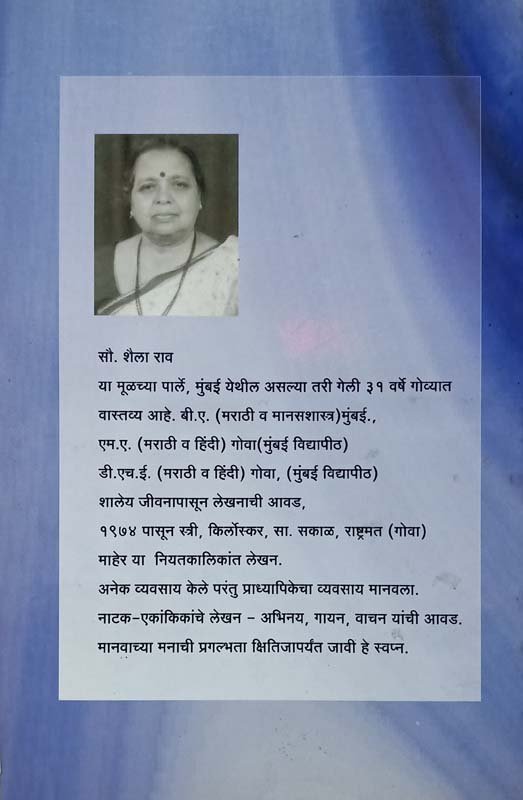 सौ. शैला राव
या मूळच्या पार्ले, मुंबई येथील असल्या तरी गेली ३१ वर्षे गोव्यात
वास्तव्य आहे. बी.ए. (मराठी व मानसशास्त्र)मुंबई.,
एम.ए. (मराठी व हिंदी) गोवा(मुंबई विद्यापीठ)
डी.एच.ई. (मराठी व हिंदी) गोवा, (मुंबई विद्यापीठ)
शालेय जीवनापासून लेखनाची आवड,
१९७४ पासून स्त्री, किर्लोस्कर, सा. सकाळ, राष्ट्रमत (गोवा)
माहेर या नियतकालिकांत लेखन.
अनेक व्यवसाय केले परंतु प्राध्यापिकेचा व्यवसाय मानवला.
नाटक-एकांकिकांचे लेखन - अभिनय, गायन, वाचन यांची आवड.
मानवाच्या मनाची प्रगल्भता क्षितिजापर्यंत जावी हे स्वप्न.